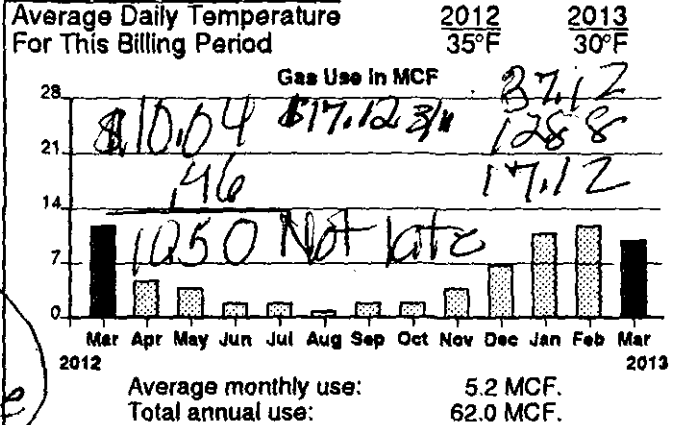 Average Daily Temperature 2012 2013
For This Billing Period 35°F 30°F
Gas Use in MCF
37.12
28
$10.04 $17.12 3/11 1288
21
.46 17.12
14
10.50 Not late
7
0
Mar Apr May Jun Jul Aug Sep Oct Nov Dec Jan Feb Mar
2012 2013
Average monthly use: 5.2 MCF.
Total annual use: 62.0 MCF.